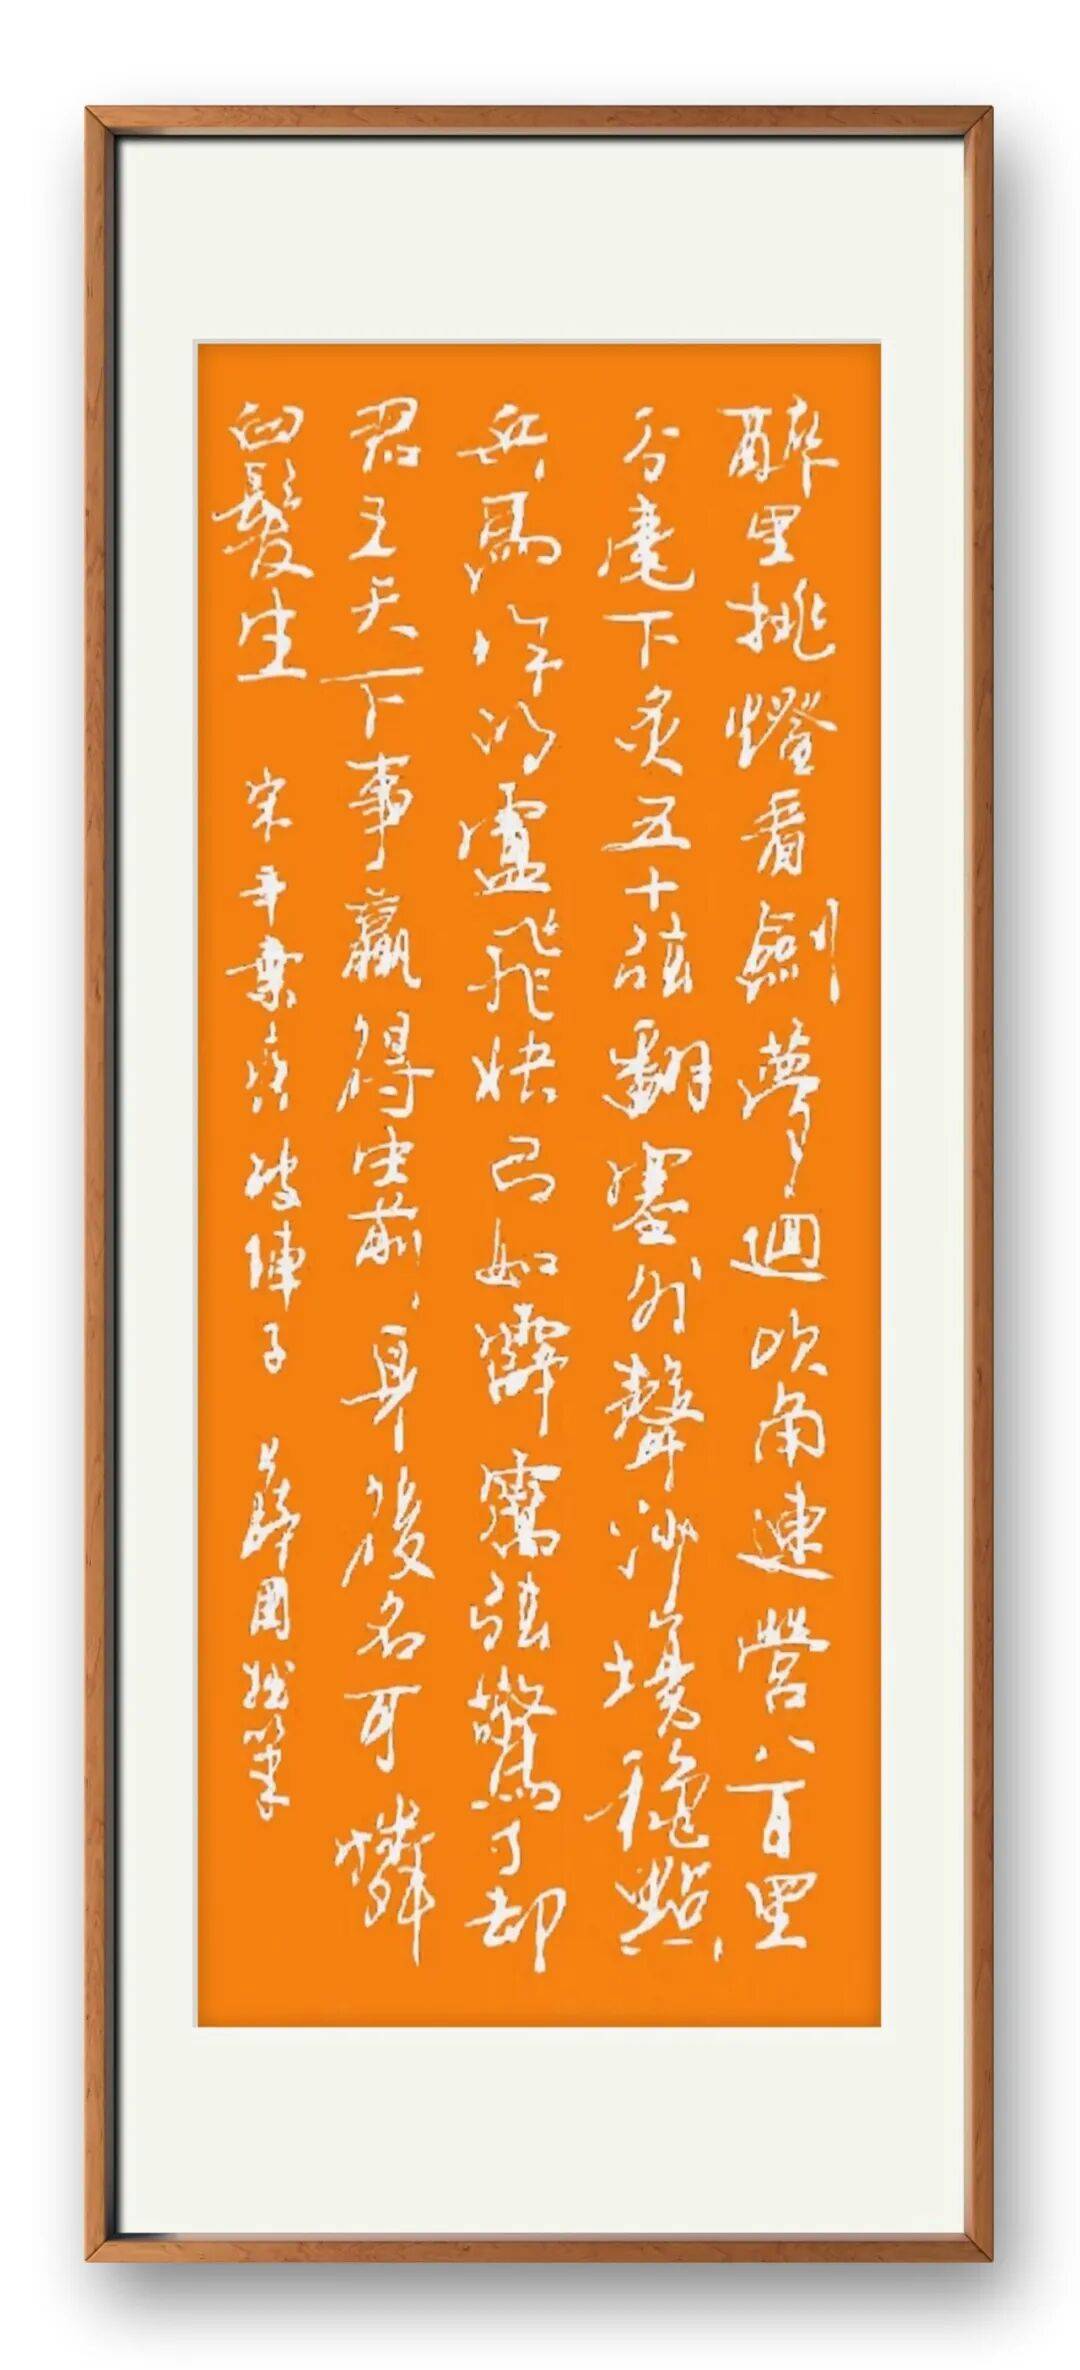 醉里挑燈看劍夢迴吹角連營八百里
分麾下炙五十弦翻塞外聲沙場穐點
兵馬作的盧飛快弓如霹靂弦驚了却
君王天下事贏得生前身後名可憐
白髮生 宋辛棄疾破陣子 薛國筆